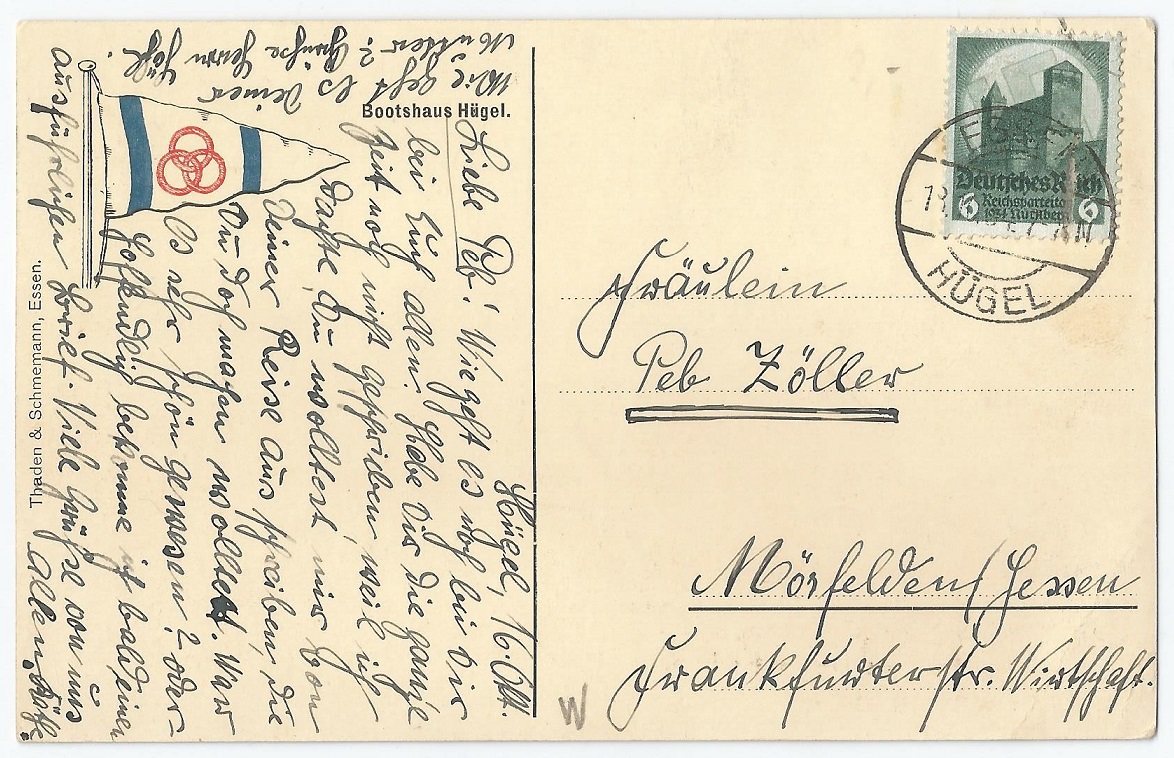 Bootshaus Hügel.
Thaden & Schmemann, Essen.
Hügel, 16. Okt.
Liebe Peb! Wie geht es noch bei dir
bei Euch allen. Habe dir die ganze
Zeit noch nicht geschrieben, weil ich
dachte, Du wolltest mir von
Deiner Reise aus schreiben, die
Du doch machen wolltest. War
es sehr schön gewesen? oder
Hoffendlich bekomme ich bald einen
ausführlichen Brief. Viele Grüße von uns
allen
Wie geht es Deiner
Mutter? Grüße Herrn
Deutsches Reich
6 Reichsparteitag 6
1934 Nürnberg
ESSEN
HÜGEL
Fräulein
Peb Zöller
Mörfelden/Hessen
Frankfurterstr. Wirtschaft.
W